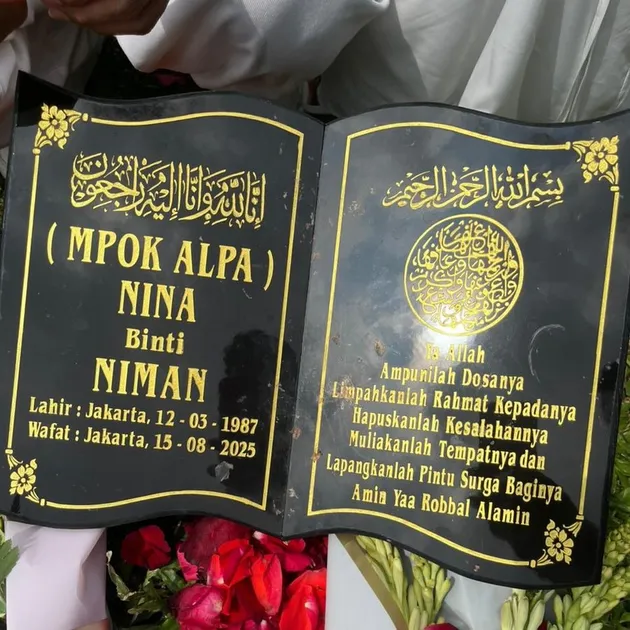 إنا لله وإنا إليه راجعون
( MPOK ALPA )
NINA
Binti
NIMAN
Lahir : Jakarta, 12 - 03 - 1987
Wafat : Jakarta, 15 - 08 - 2025
بسم الله الرحمن الرحيم
Ya Allah
Ampunilah Dosanya
Limpahkanlah Rahmat Kepadanya
Hapuskanlah Kesalahannya
Muliakanlah Tempatnya dan
Lapangkanlah Pintu Surga Baginya
Amin Yaa Robbal Alamin